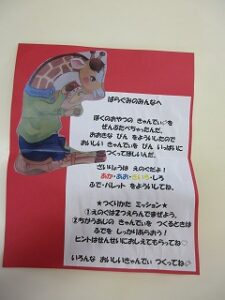 ばらぐみのみんなへ
ぼくのおやつの きゃんでぃを
ぜんぶたべちゃったんだ。
おおきな びん をよういしたので
おいしい きゃんでぃを びん いっぱいに
つくってほしいんだ。
ざいりょうは えのぐだよ!
あか・あお・きいろ・しろ
ふで・パレット をよういしてね。
★つくりかた ミッション★
①えのぐは2つえらんでまぜよう。
②ちがうあじの きゃんでぃを つくるときは
ふでを しっかりあらおう!
ヒントはせんせいにおしえてもらってね♡
いろんな おいしいきゃんでぃ つくってね